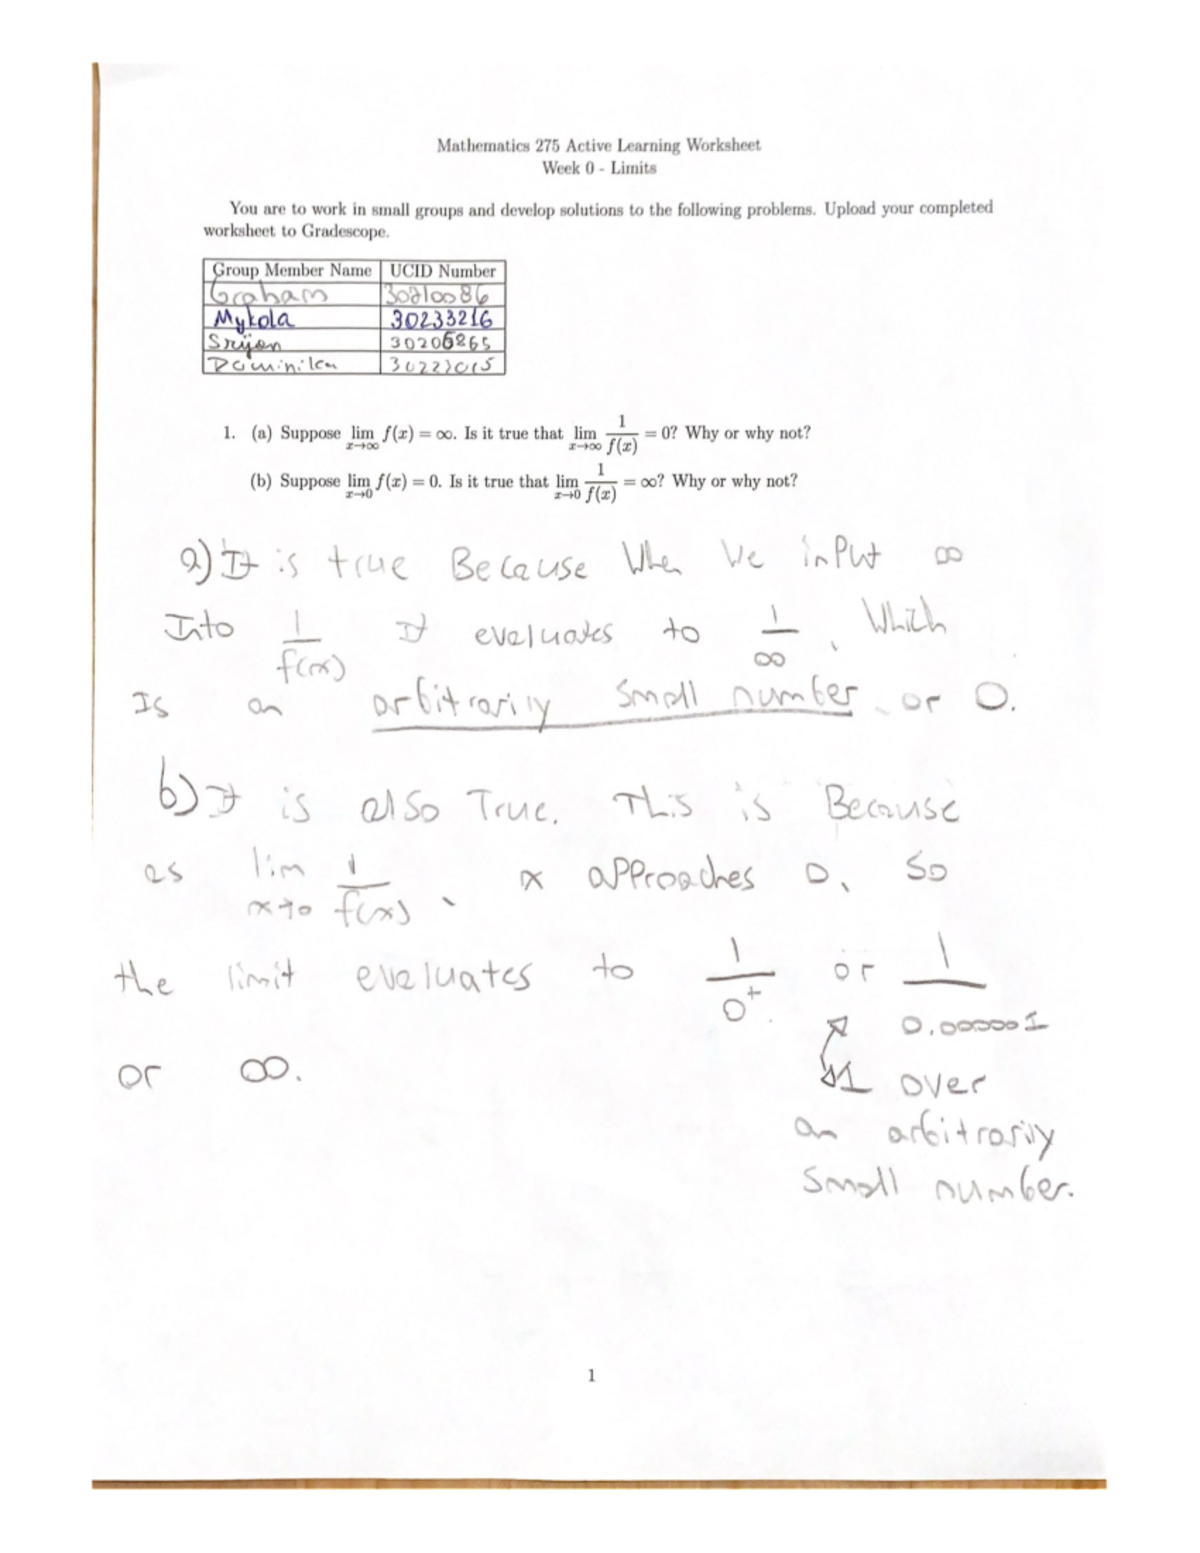 Mathematics 275 Active Learning Worksheet
Week 0 - Limits
You are to work in small groups and develop solutions to the following problems. Upload your completed
worksheet to Gradescope.
Group Member Name UCID Number
Graham 30210086
Mykola 30233216
Srijan 30206865
Dominika 30223015
1. (a) Suppose lim x→∞ f(x) = ∞. Is it true that lim x→∞ 1/f(x) = 0? Why or why not?
(b) Suppose lim x→0 f(x) = 0. Is it true that lim x→0 1/f(x) = ∞? Why or why not?
a) It is true Because When We inPut ∞
Into 1/f(x) It evaluates to 1/∞, Which
Is an arbitrarily small number, or 0.
b) It is also True. This is Because
as lim x→0 1/f(x), x approaches 0, So
the limit evaluates to 1/0⁺ or 1/0.000001
or ∞.
1 over
an arbitrarily
small number.
1